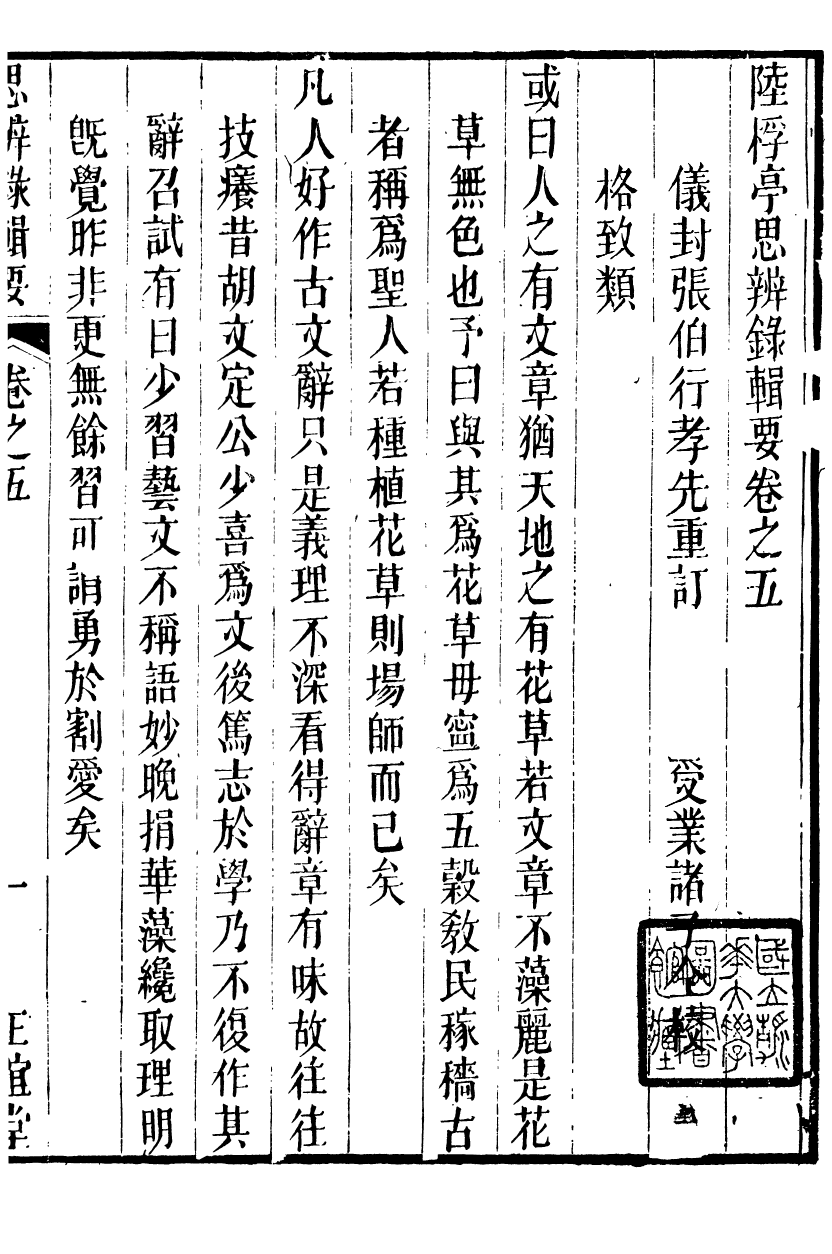 陸桴亭思辨錄輯要卷之五
儀封張伯行孝先重訂　受業諸子仝校
格致類
或曰人之有文章猶天地之有花草若文章不藻麗是花
草無色也予曰與其爲花草毋寍爲五穀教民稼穡古
者稱爲聖人若種植花草則場師而已矣
凡人好作古文辭只是義理不深看得辭章有味故往往
技癢昔胡文定公少喜爲文後篤志於學乃不復作其
辭召試有曰少習藝文不稱語妙晚捐華藻纔取理明
旣覺昨非更無餘習可謂勇於割愛矣
思辨錄輯要
卷之五
一
正誼堂
國立清
華大學
圖書
館藏